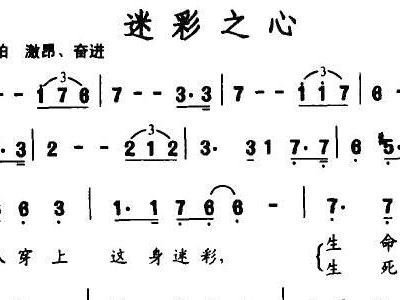 迷彩之心
激昂、奋进
- - 1 7 6 | 7 - - 3·3 | 7 - - 1 7 | 6 -
3 | 2 - - 2 1 2 | 3· 3 1 7·7 | 6 5·
6 3 | 1·1 7 6 6 - | 7· 7
穿上 这身迷彩,
生命
生死